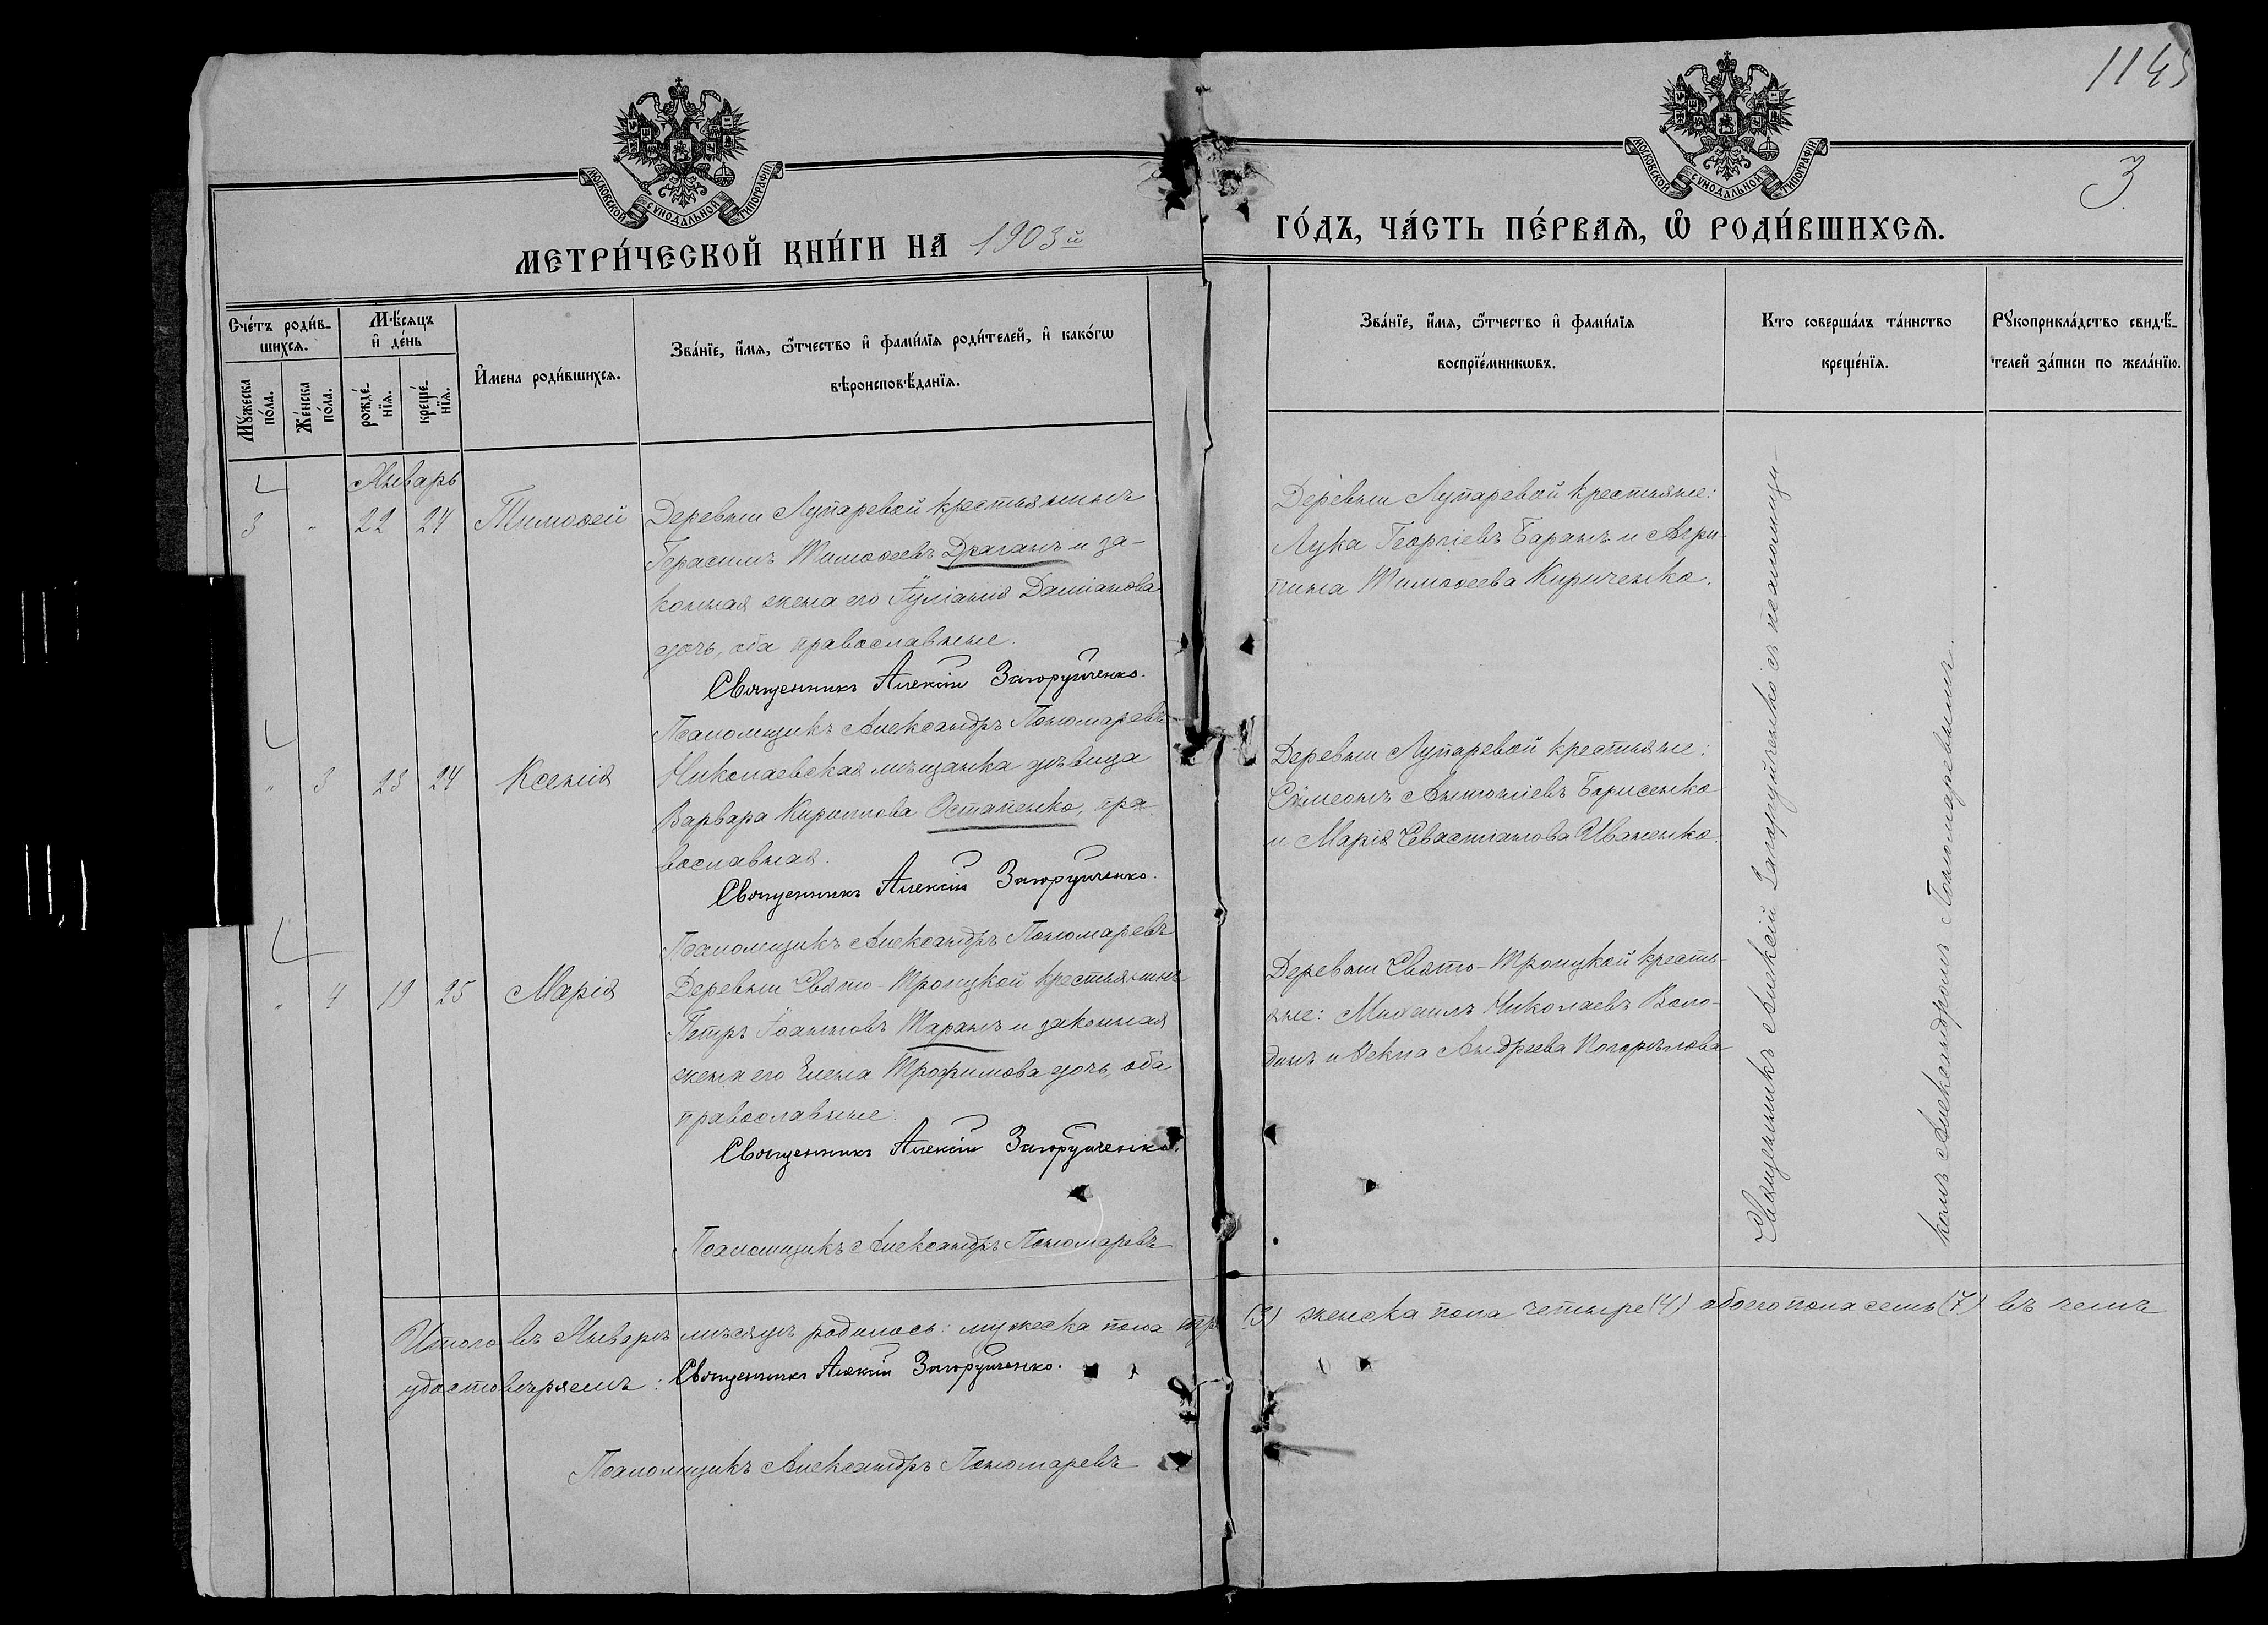 1145
3
МОСКОВСКОЙ СѴНОДАЛЬНОЙ ТИПОГРАФІИ
МОСКОВСКОЙ СѴНОДАЛЬНОЙ ТИПОГРАФІИ
МЕТРИ́ЧЕСКОЙ КНИ́ГИ НА 1903й
ГО́ДЪ, ЧА́СТЬ ПЕ́РВАѦ, Ѽ РОДИ́ВШИХСѦ.
Сче́тъ роди́в-
шихсѧ.
Мѣ́сѧцъ
и҆ де́нь
Мꙋ́жеска
по́ла.
Же́нска
по́ла.
рожде́-
нїѧ.
креще́-
нїѧ.
И҆мена роди́вшихсѧ.
Зва́нїе, и҆́мѧ, ѻ҆́тчество и҆ фами́лїѧ роди́телей, и҆ како́гѡ
вѣроисповѣ́данїѧ.
Зва́нїе, и҆́мѧ, ѻ҆́тчество и҆ фами́лїѧ
воспрїе́мникѡвъ.
Кто соверша́лъ та́инство
креще́нїѧ.
Рꙋкоприкла́дство свидѣ́-
телей за́писи по жела́нїю.
Январь
3 " 22 24 Тимоѳей
Деревни Лупаревой крестьянинъ
Герасимъ Тимоѳеевъ Драганъ и за-
конная жена его Іуліанія Даміанова
дочь, оба православные.
Священникъ Алексій Загоруйченко.
Псаломщикъ Александръ Пономаревъ
Деревни Лупаревой крестьяне:
Лука Георгіевъ Баранъ и Агри-
пина Тимоѳеева Кириченко.
" 3 23 24 Ксенія
Николаевская мѣщанка дѣвица
Варвара Кириллова Остапенко, пра-
вославная.
Священникъ Алексій Загоруйченко.
Псаломщикъ Александръ Пономаревъ
Деревни Лупаревой крестьяне:
Симеонъ Антоніевъ Борисенко
и Марія Севастіанова Иваненко.
" 4 19 25 Марія
Деревни Свято-Троицкой крестьянинъ
Петръ Іоанновъ Таранъ и законная
жена его Елена Трофимова дочь, оба
православные.
Священникъ Алексій Загоруйченко.
Псаломщикъ Александръ Пономаревъ
Деревни Свято-Троицкой кресть-
яне: Михаилъ Николаевъ Воло-
динъ и Ѳекла Андреева Погорѣлова
Священникъ Алексій Загоруйченко съ псаломщи-
комъ Александромъ Пономаревымъ.
Итого въ Январѣ мѣсяцѣ родилось: мужеска пола три (3) женска пола четыре (4) обоего пола семь (7) въ чемъ
удостовѣряемъ: Священникъ Алексій Загоруйченко.
Псаломщикъ Александръ Пономаревъ